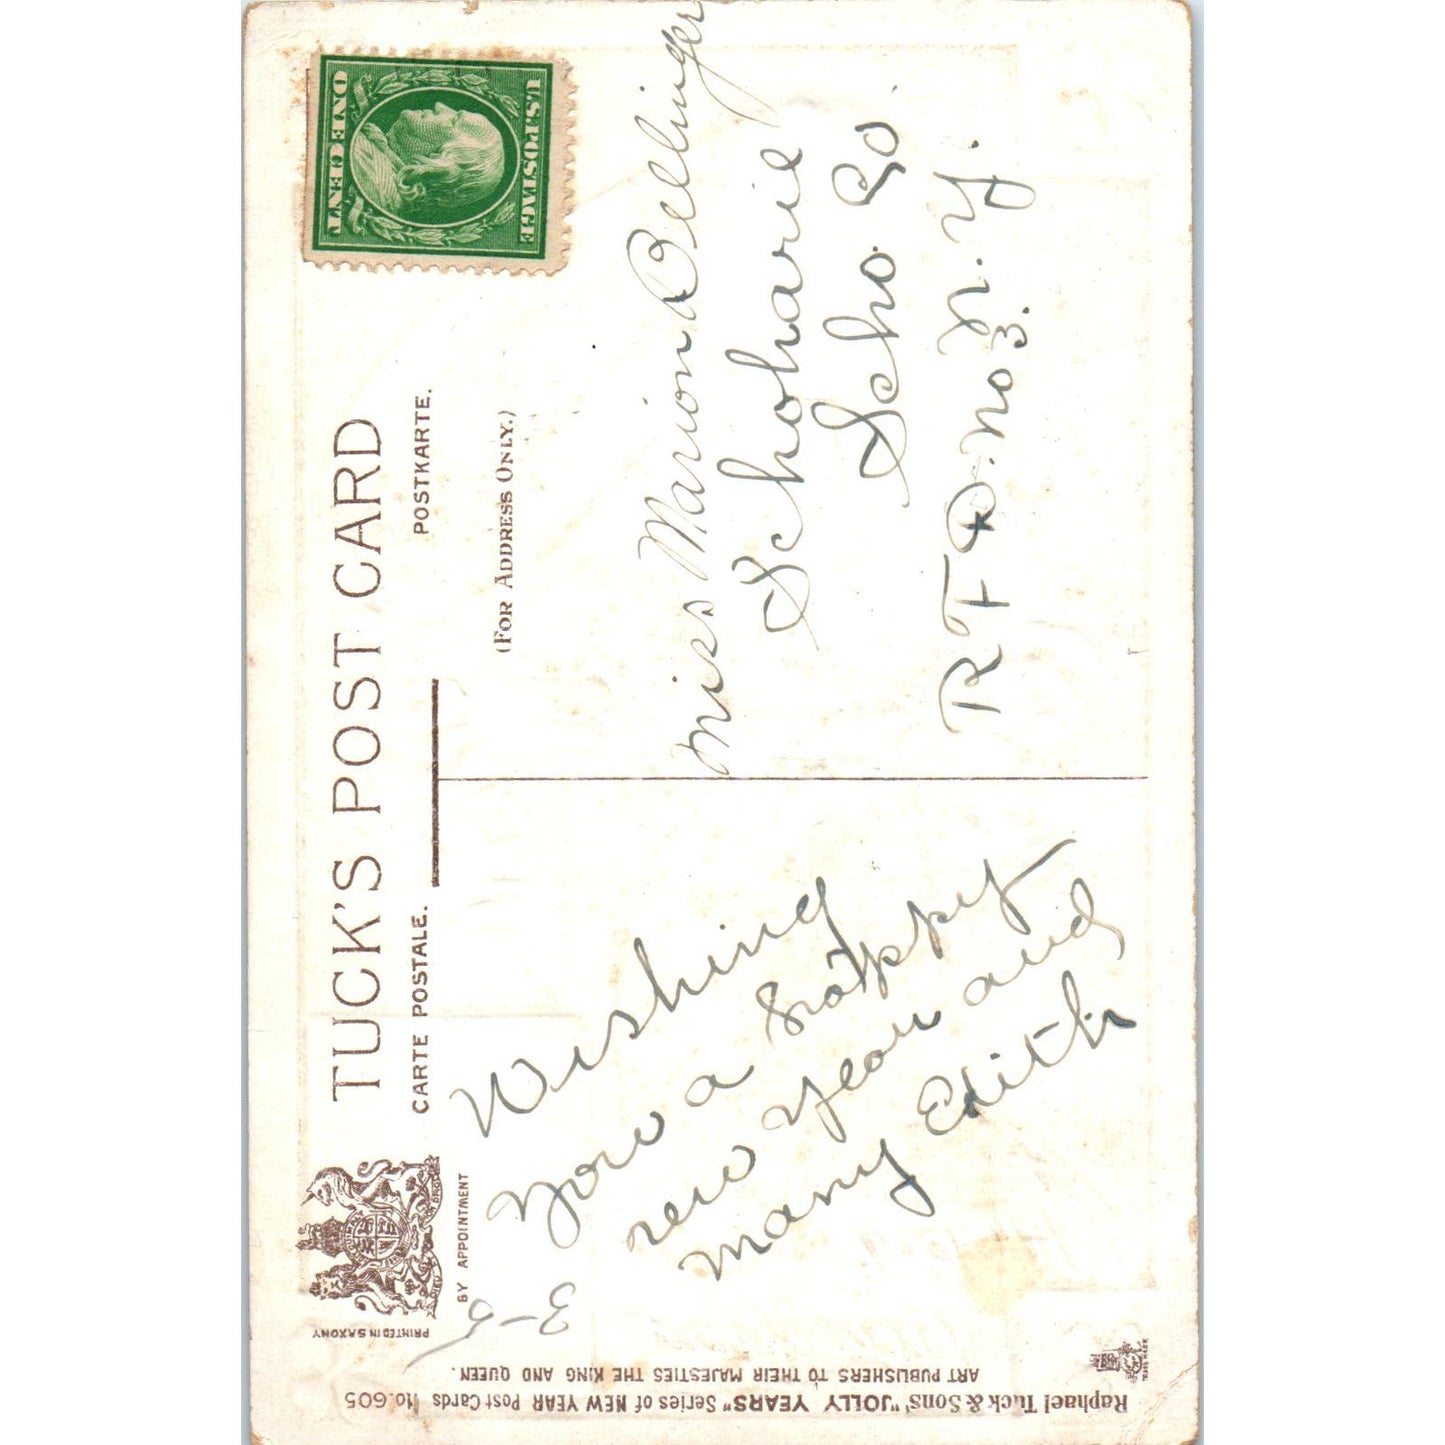 TUCK'S POST CARD
CARTE POSTALE.
POSTKARTE.
(FOR ADDRESS ONLY.)
BY APPOINTMENT
PRINTED IN SAXONY
U.S. POSTAGE
ONE CENT
Wishing
you a happy
new year and
many
Edith
Miss Marion Bellinger
Schoharie
Scho Co.
N.Y.
RFD. No 3.
Raphael Tuck & Sons' "JOLLY YEARS" Series of NEW YEAR Post Cards No. 605
ART PUBLISHERS TO THEIR MAJESTIES THE KING AND QUEEN.